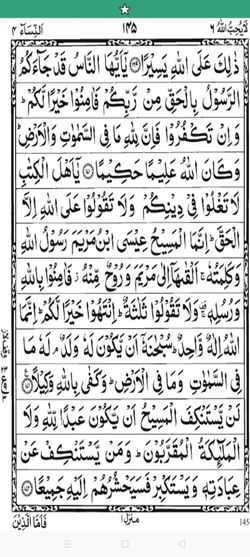 لَايُحِبُّ اللّٰهُ ٦ ١٤٥ اَلنِّسَآء ٤
ذٰلِكَ عَلَى اللّٰهِ يَسِيْرًا ﴿١٦٩﴾ يٰۤاَيُّهَا النَّاسُ قَدْ جَآءَكُمُ
الرَّسُوْلُ بِالْحَقِّ مِنْ رَّبِّكُمْ فَاٰمِنُوْا خَيْرًا لَّكُمْ ؕ
وَ اِنْ تَكْفُرُوْا فَاِنَّ لِلّٰهِ مَا فِی السَّمٰوٰتِ وَالْاَرْضِ ؕ
وَكَانَ اللّٰهُ عَلِيْمًا حَكِيْمًا ﴿١٧٠﴾ يٰۤاَهْلَ الْكِتٰبِ
لَا تَغْلُوْا فِیْ دِيْنِكُمْ وَلَا تَقُوْلُوْا عَلَى اللّٰهِ اِلَّا
الْحَقَّ ؕ اِنَّمَا الْمَسِيْحُ عِيْسَى ابْنُ مَرْيَمَ رَسُوْلُ اللّٰهِ
وَكَلِمَتُهٗ ۚ اَلْقٰىهَاۤ اِلٰى مَرْيَمَ وَرُوْحٌ مِّنْهُ ؗ فَاٰمِنُوْا بِاللّٰهِ
وَرُسُلِهٖ ۚ وَلَا تَقُوْلُوْا ثَلٰثَةٌ ؕ اِنْتَهُوْا خَيْرًا لَّكُمْ ؕ اِنَّمَا
اللّٰهُ اِلٰهٌ وَّاحِدٌ ؕ سُبْحٰنَهٗۤ اَنْ يَّكُوْنَ لَهٗ وَلَدٌ ۘ لَهٗ مَا
فِی السَّمٰوٰتِ وَمَا فِی الْاَرْضِ ؕ وَكَفٰى بِاللّٰهِ وَكِيْلًا ﴿١٧١﴾
لَنْ يَّسْتَنْكِفَ الْمَسِيْحُ اَنْ يَّكُوْنَ عَبْدًا لِّلّٰهِ وَلَا
الْمَلٰٓئِكَةُ الْمُقَرَّبُوْنَ ؕ وَمَنْ يَّسْتَنْكِفْ عَنْ
عِبَادَتِهٖ وَيَسْتَكْبِرْ فَسَيَحْشُرُهُمْ اِلَيْهِ جَمِيْعًا ﴿١٧٢﴾
فَاَمَّا الَّذِيْنَ منزل ١ 145